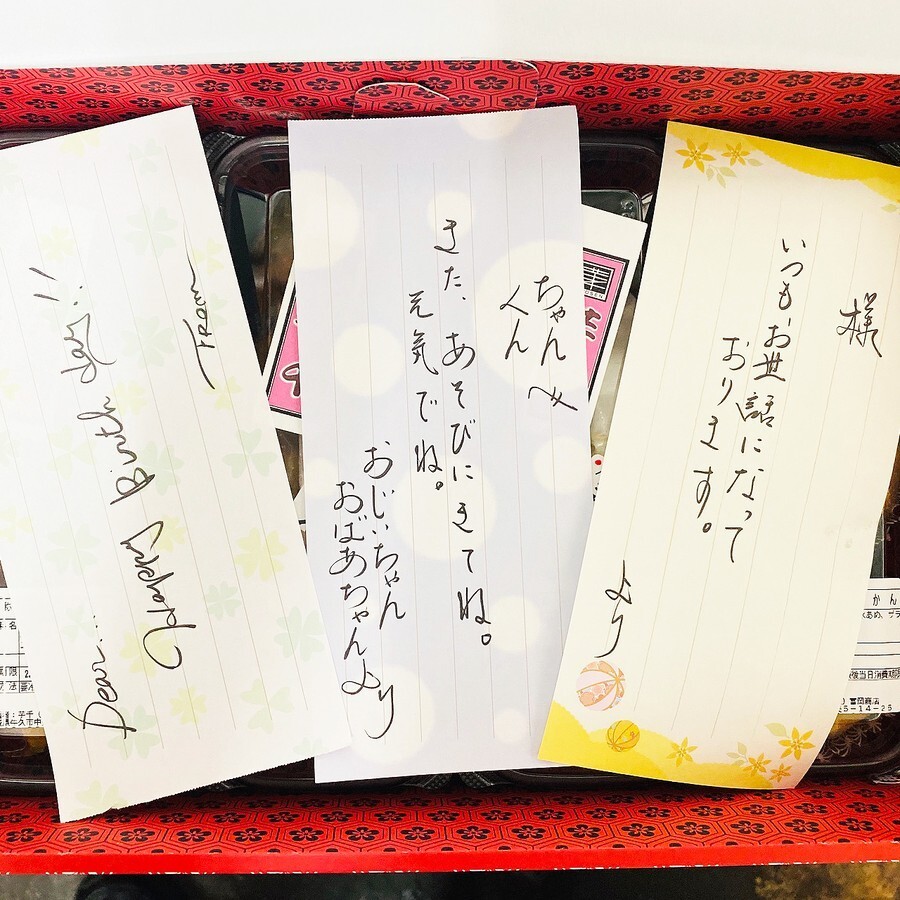 Dear...
Happy Birth day!!
From
ちゃんへ
くん
また、あそびにきてね。
元気でね。
おじぃちゃん
おばあちゃんより
様
いつもお世話になって
おります。
より